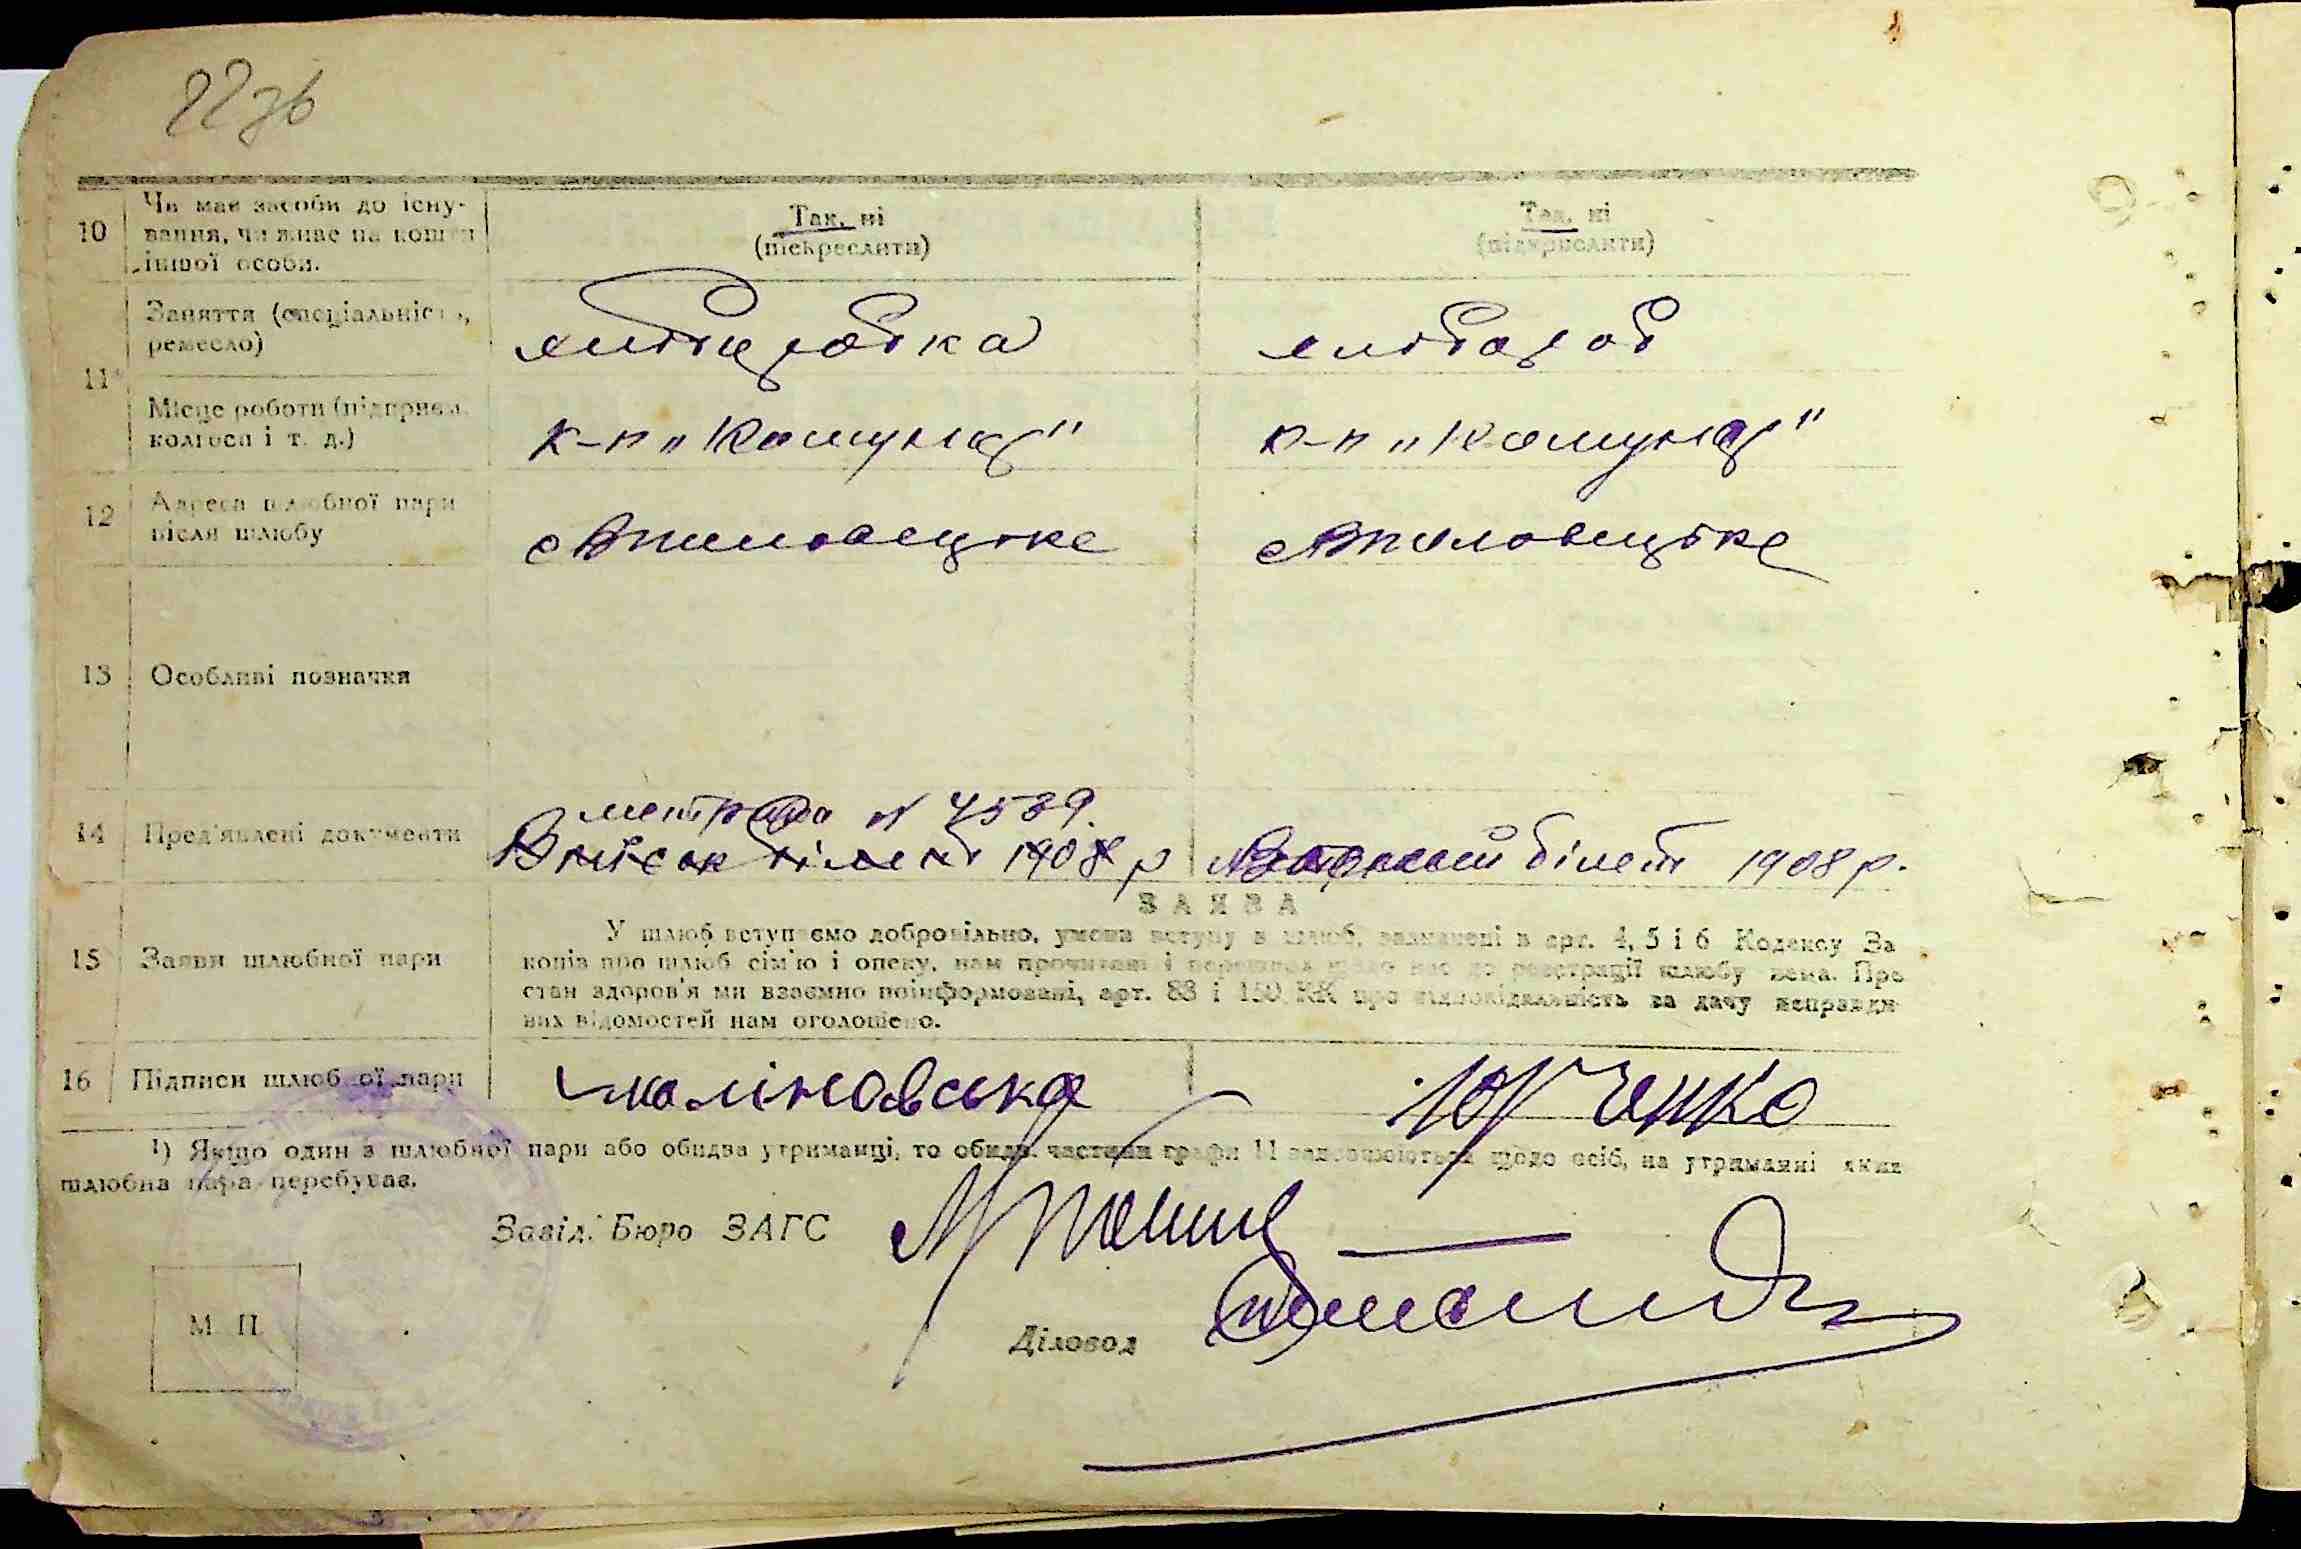 22зв
10 Чи має засоби до існу-
вання, чи живе на кошти
іншої особи.
Так, ні
(піскреслити)
Так, ні
(підкреслити)
11 Заняття (спеціальність,
ремесло)
хліборобка
хлібороб
Місце роботи (підприєм.
колгосп і т. д.)
к-п „Комунар"
к-п „Комунар"
12 Адреса шлюбної пари
після шлюбу
13 Особливі позначки
14 Пред'явлені документи
метрика N 4539.
білет 1908 р
білет 1908 р.
ЗАЯВА
15 Заяви шлюбної пари
У шлюб вступаємо добровільно, умови вступу в шлюб, зазначені в арт. 4, 5 і 6 Кодексу За
конів про шлюб сім'ю і опеку, нам прочитані і перешкод щодо нас до реєстрації шлюбу нема. Про
стан здоров'я ми взаємно поінформовані, арт. 88 і 150 КК про відповідальність за дачу неправди
вих відомостей нам оголошено.
16 Підписи шлюбної пари
Маліновська
Юрченко
¹) Якщо один з шлюбної пари або обидва утриманці, то обидві частини графи 11 заповнюються щодо осіб, на утриманні яких
шлюбна пара перебуває.
Завід. Бюро ЗАГС
Діловод
М. П.